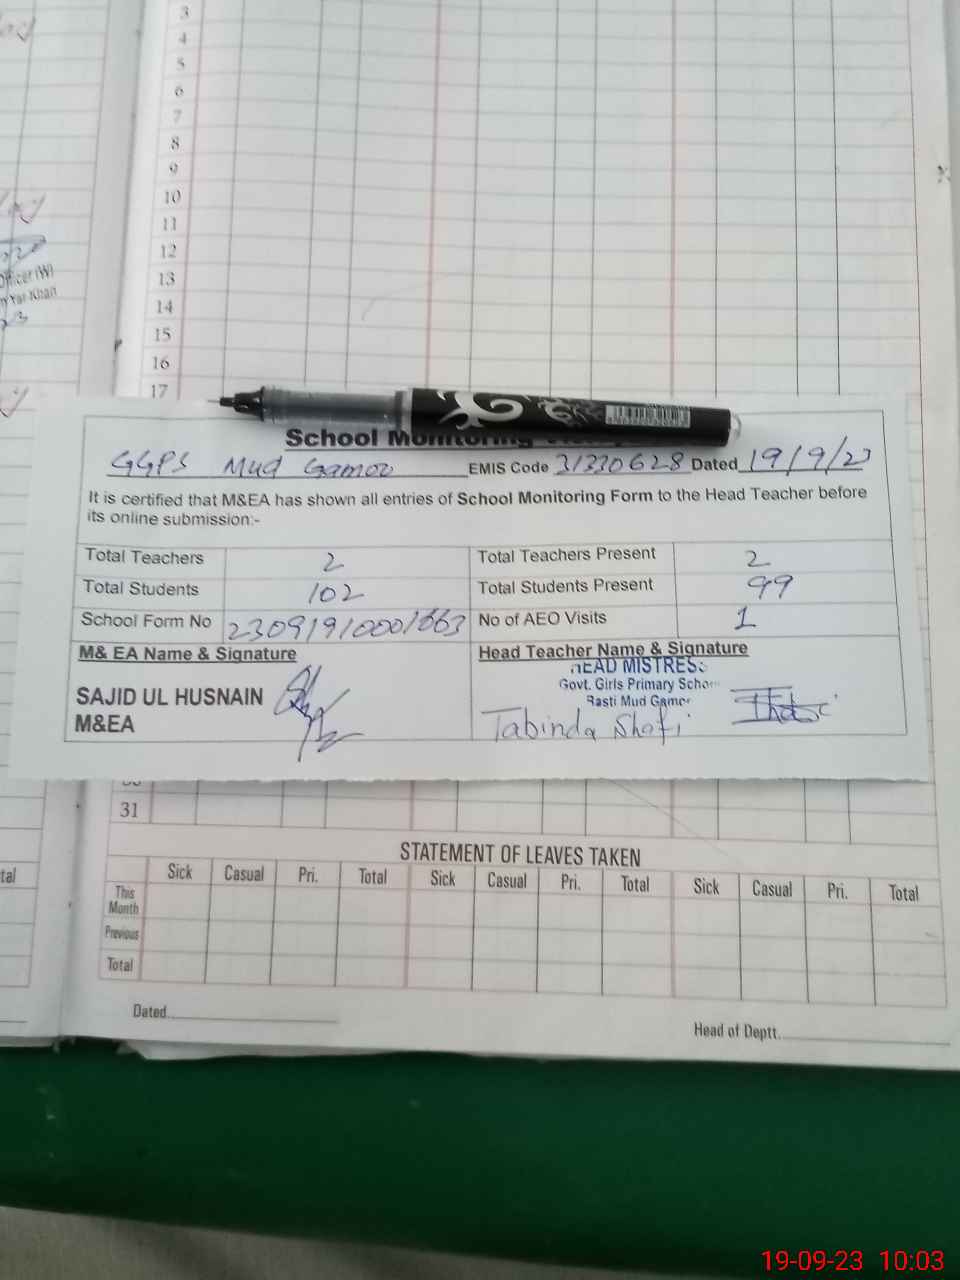 3
4
5
6
7
8
9
10
11
12
13
14
15
16
17
Officer (W)
Yar Khan
School Monitoring
GGPS Mud Gamoo EMIS Code 31330628 Dated 19/9/23
It is certified that M&EA has shown all entries of School Monitoring Form to the Head Teacher before
its online submission:-
Total Teachers 2 Total Teachers Present 2
Total Students 102 Total Students Present 99
School Form No 23091910001663 No of AEO Visits 1
M& EA Name & Signature Head Teacher Name & Signature
HEAD MISTRESS
Govt. Girls Primary School
Basti Mud Gamoo
SAJID UL HUSNAIN
M&EA
Tabinda Shafi
31
STATEMENT OF LEAVES TAKEN
Sick Casual Pri. Total Sick Casual Pri. Total Sick Casual Pri. Total
This
Month
Previous
Total
tal
Dated
Head of Deptt.
19-09-23 10:03